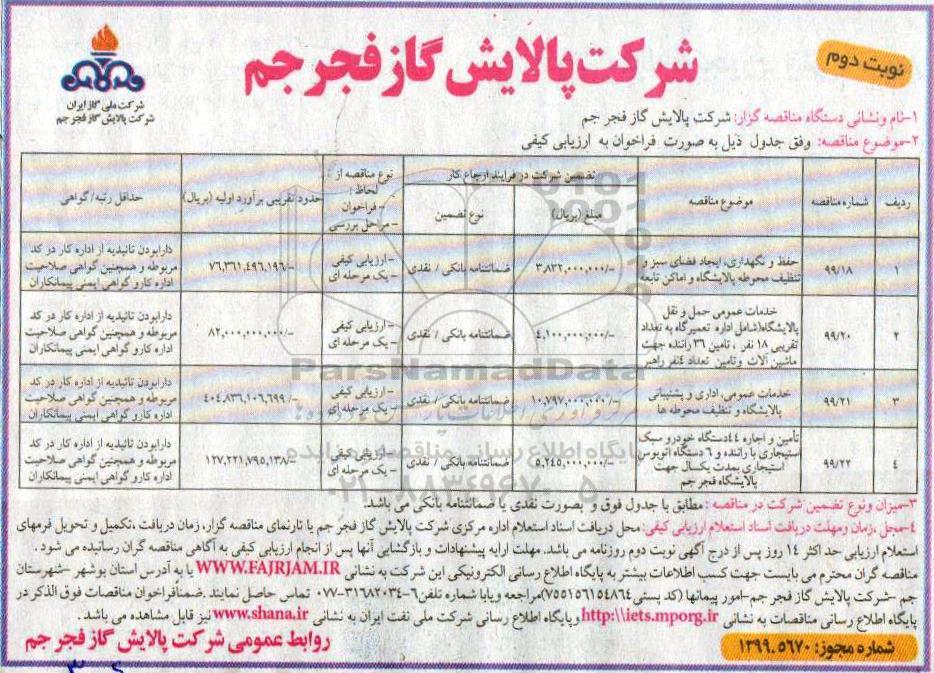 نوبت دوم
شرکت پالایش گاز فجر جم
شرکت ملی گاز ایران
شرکت پالایش گاز فجر جم
۱-نام ونشانی دستگاه مناقصه گزار: شرکت پالایش گاز فجر جم
۲-موضوع مناقصه: وفق جدول ذیل به صورت فراخوان به ارزیابی کیفی
ردیف
شماره مناقصه
موضوع مناقصه
تضمین شرکت در فرایند ارجاع کار
مبلغ (بریال)
نوع تضمین
نوع مناقصه از :
لحاظ :
- فراخوان
- مراحل بررسی
حدود تقریبی برآورد اولیه (بریال)
حداقل رتبه/ گواهی
۱
۹۹/۱۸
حفظ و نگهداری، ایجاد فضای سبز و
تنظیف محوطه پالایشگاه و اماکن تابعه
۳،۸۲۲،۰۰۰،۰۰۰/-
ضمانتنامه بانکی / نقدی
- ارزیابی کیفی
- یک مرحله ای
۷۶،۳۶۱،۴۹۶،۱۹۶/-
دارابودن تائیدیه از اداره کار در کد
مربوطه و همچنین گواهی صلاحیت
اداره کار و گواهی ایمنی پیمانکاران
۲
۹۹/۲۰
خدمات عمومی حمل و نقل
پالایشگاه(شامل اداره تعمیرگاه به تعداد
تقریبی ۱۸ نفر ، تامین ۳۶ راننده جهت
ماشین آلات وتامین تعداد ۴نفر راهبر
۴،۱۰۰،۰۰۰،۰۰۰/-
ضمانتنامه بانکی / نقدی
- ارزیابی کیفی
- یک مرحله ای
۸۲،۰۰۰،۰۰۰،۰۰۰/-
دارابودن تائیدیه از اداره کار در کد
مربوطه و همچنین گواهی صلاحیت
اداره کار و گواهی ایمنی پیمانکاران
۳
۹۹/۲۱
خدمات عمومی، اداری و پشتیبانی
پالایشگاه و تنظیف محوطه ها
۱۰،۷۹۷،۰۰۰،۰۰۰/-
ضمانتنامه بانکی / نقدی
- ارزیابی کیفی
- یک مرحله ای
۴۰۴،۸۳۶،۱۰۶،۶۹۹/-
دارابودن تائیدیه از اداره کار در کد
مربوطه و همچنین گواهی صلاحیت
اداره کار و گواهی ایمنی پیمانکاران
۴
۹۹/۲۲
تأمین و اجاره ۴۴دستگاه خودرو سبک
استیجاری با راننده و ۶ دستگاه اتوبوس
استیجاری بمدت یکسال جهت
پالایشگاه فجر جم
۵،۲۴۵،۰۰۰،۰۰۰/-
ضمانتنامه بانکی / نقدی
- ارزیابی کیفی
- یک مرحله ای
۱۲۷،۲۲۱،۷۹۵،۱۳۸/-
دارابودن تائیدیه از اداره کار در کد
مربوطه و همچنین گواهی صلاحیت
اداره کار و گواهی ایمنی پیمانکاران
ParsNamadData
پایگاه اطلاع رسانی مناقصه و مزایده
۰۲۱-۸۸۳۴۹۶۷۰-۵
۳-میزان ونوع تضمین شرکت در مناقصه : مطابق با جدول فوق و بصورت نقدی یا ضمانتنامه بانکی می باشد.
۴-محل ،زمان ومهلت دریافت اسناد استعلام ارزیابی کیفی: محل دریافت اسناد استعلام اداره مرکزی شرکت پالایش گاز فجر جم یا تارنمای مناقصه گزار، زمان دریافت ،تکمیل و تحویل فرمهای
استعلام ارزیابی حد اکثر ۱۴ روز پس از درج آگهی نوبت دوم روزنامه می باشد. مهلت ارایه پیشنهادات و بازگشایی آنها پس از انجام ارزیابی کیفی به آگاهی مناقصه گران رسانیده می شود .
مناقصه گران محترم می بایست جهت کسب اطلاعات بیشتر به پایگاه اطلاع رسانی الکترونیکی این شرکت به نشانی WWW.FAJRJAM.IR یا به آدرس استان بوشهر -شهرستان
جم -شرکت پالایش گاز فجر جم-امور پیمانها(کد پستی ۷۵۵۱۵۶۱۵۴۸۶۴)مراجعه ویابا شماره تلفن۶-۳۱۶۸۲۰۳۴-۰۷۷ تماس حاصل نمایند .ضمنأفراخوان مناقصات فوق الذکر در
پایگاه اطلاع رسانی مناقصات به نشانی http:\\iets.mporg.ir وپایگاه اطلاع رسانی شرکت ملی نفت ایران به نشانی www.shana.ir نیز قابل مشاهده می باشد .
شماره مجوز: ۱۳۹۹.۵۶۷۰
روابط عمومی شرکت پالایش گاز فجر جم